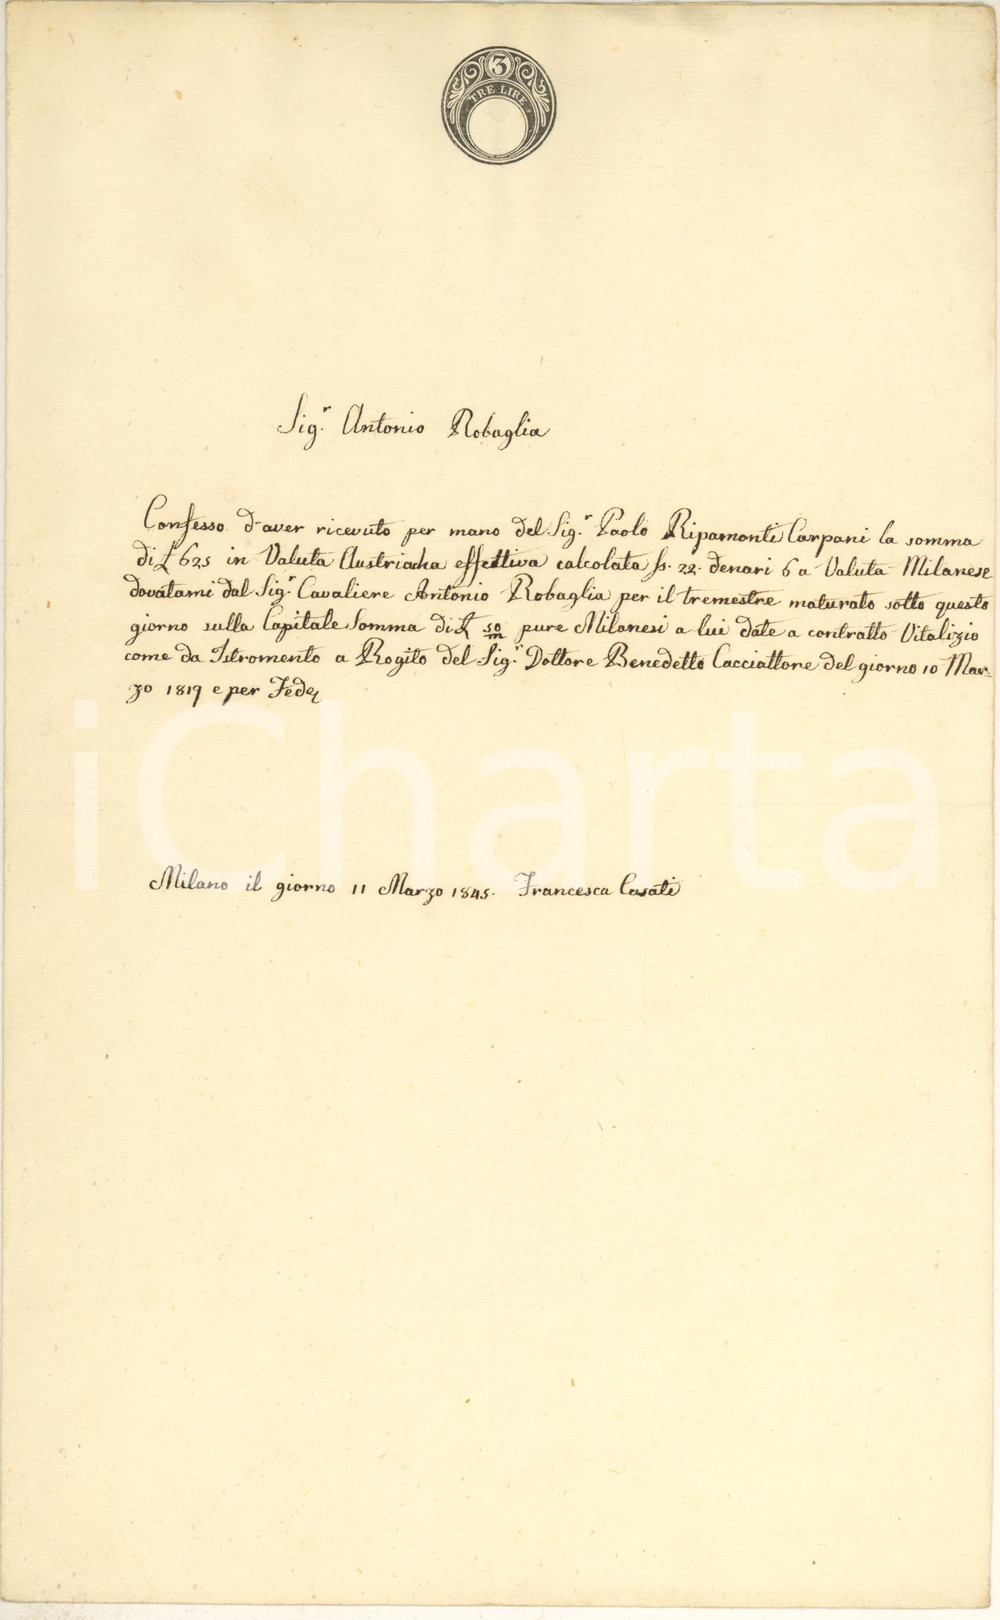 3
TRE LIRE
Sig.r Antonio Robaglia
Confesso d'aver ricevuto per mano del Sig.r Paolo Ripamonti Carpani la somma
di £ 625 in Valuta Austriacha effettiva calcolata ss. 22. denari 6 a Valuta Milanese
dovutami dal Sig.r Cavaliere Antonio Robaglia per il tremestre maturato sotto questo
giorno sulla Capitale Somma di £ 50/m pure Milanesi a lui date a contratto Vitalizio
come da Istromento a Rogito del Sig.r Dottore Benedetto Cacciattore del giorno 10 Mar-
zo 1819 e per Fede
Milano il giorno 11 Marzo 1845. Francesca Casati
iCharta